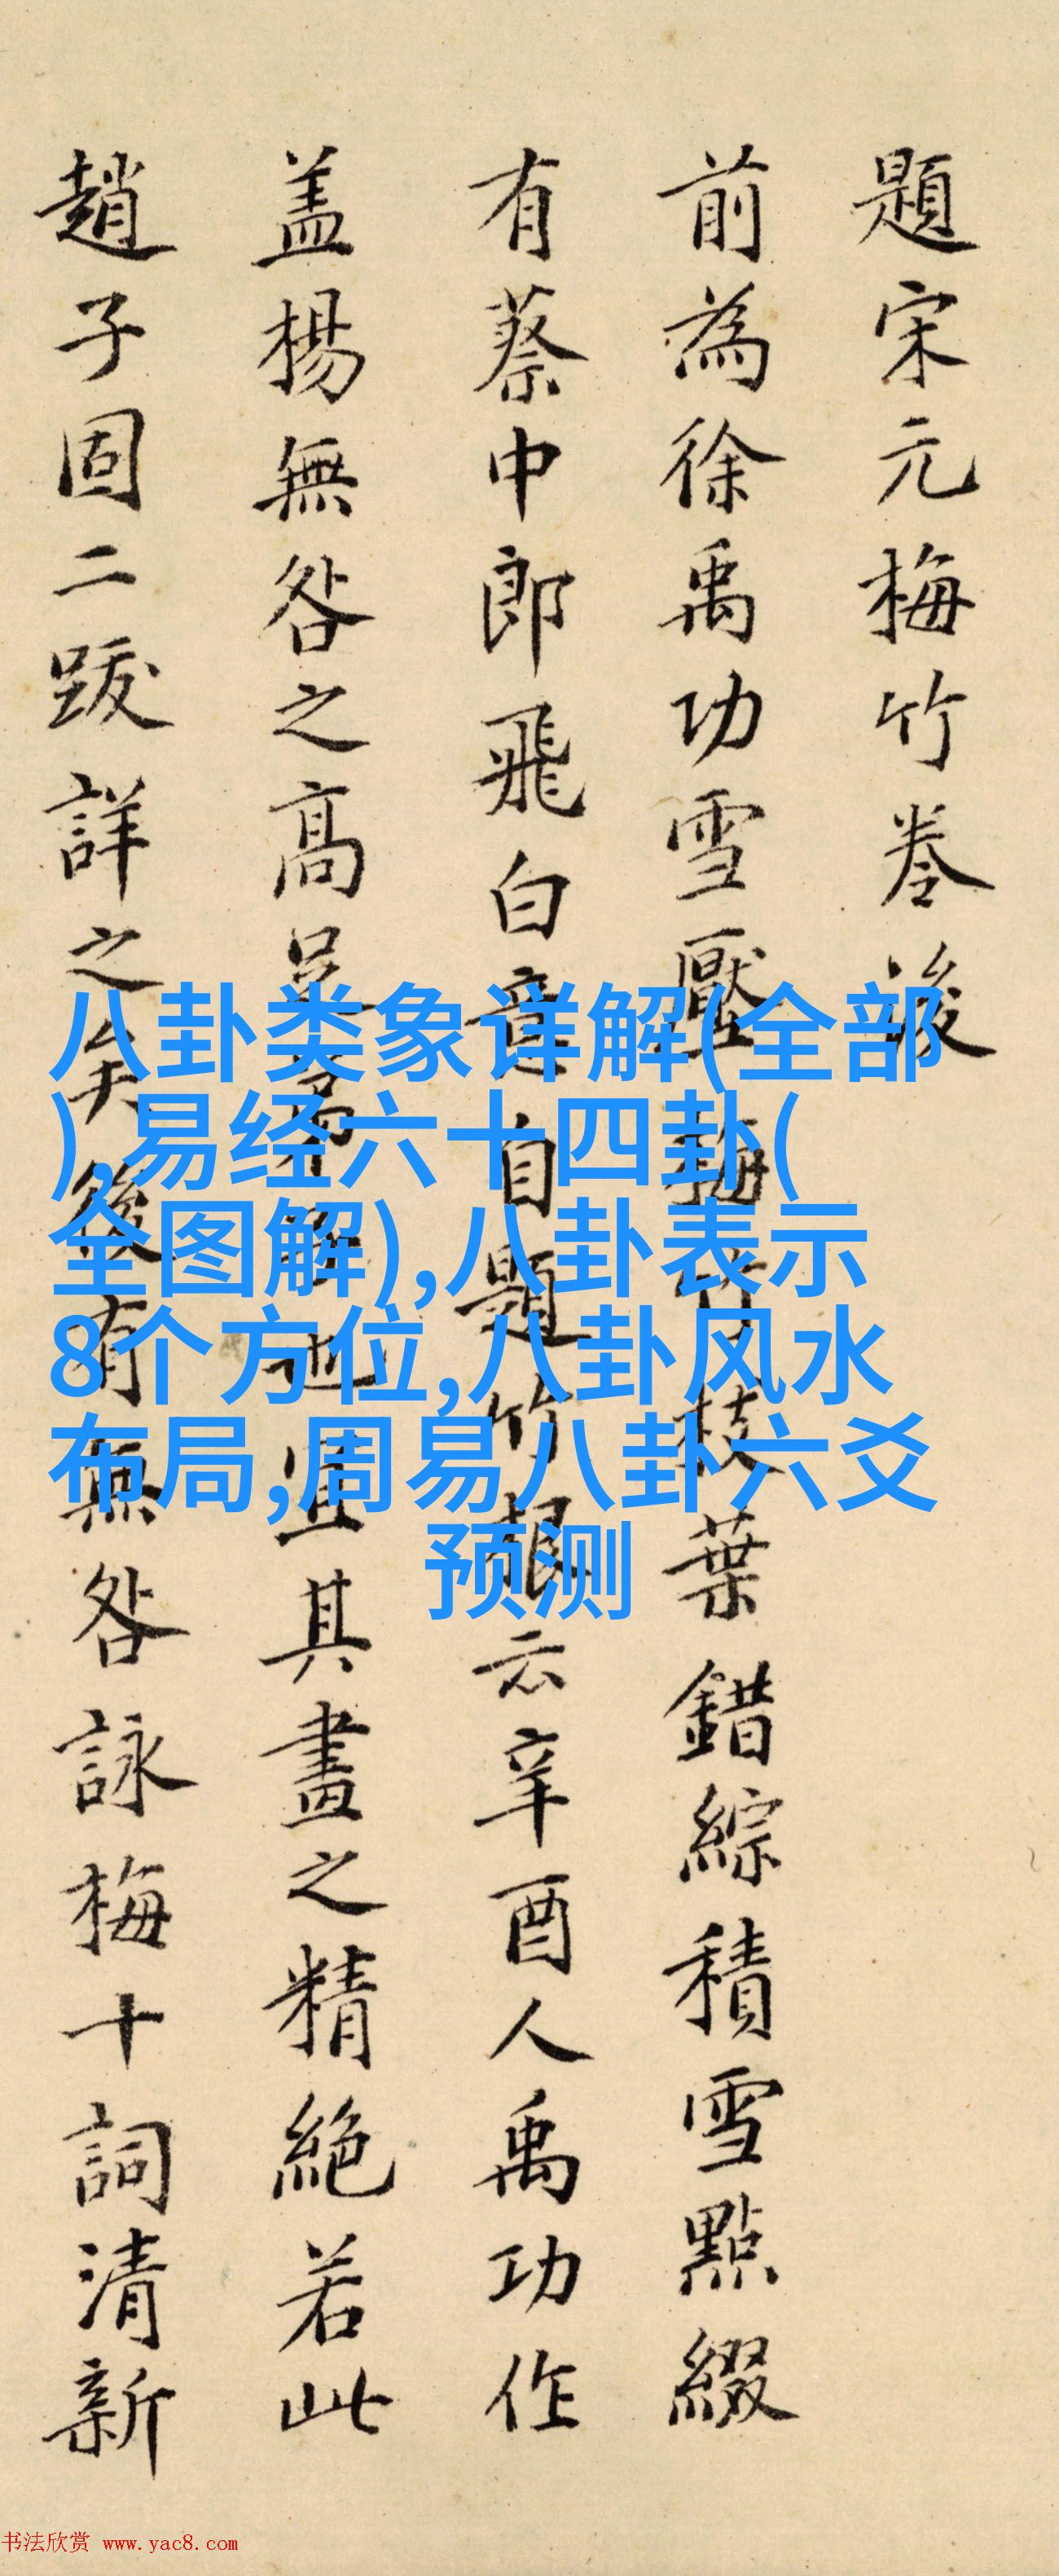 題宋元梅竹卷後
前為徐禹功雪壓梅竹枝葉錯綜積雪點綴
有蔡中郎飛白意自題竹根云辛酉人禹功作
盖楊無咎之高足弟子也宜其畫之精絕若此
趙子固二跋詳之矣後有無咎詠梅十詞清新
八卦类象详解(全部
),易经六十四卦(
全图解),八卦表示
8个方位,八卦风水
布局,周易八卦六爻
预测
书法欣赏 www.yac8.com